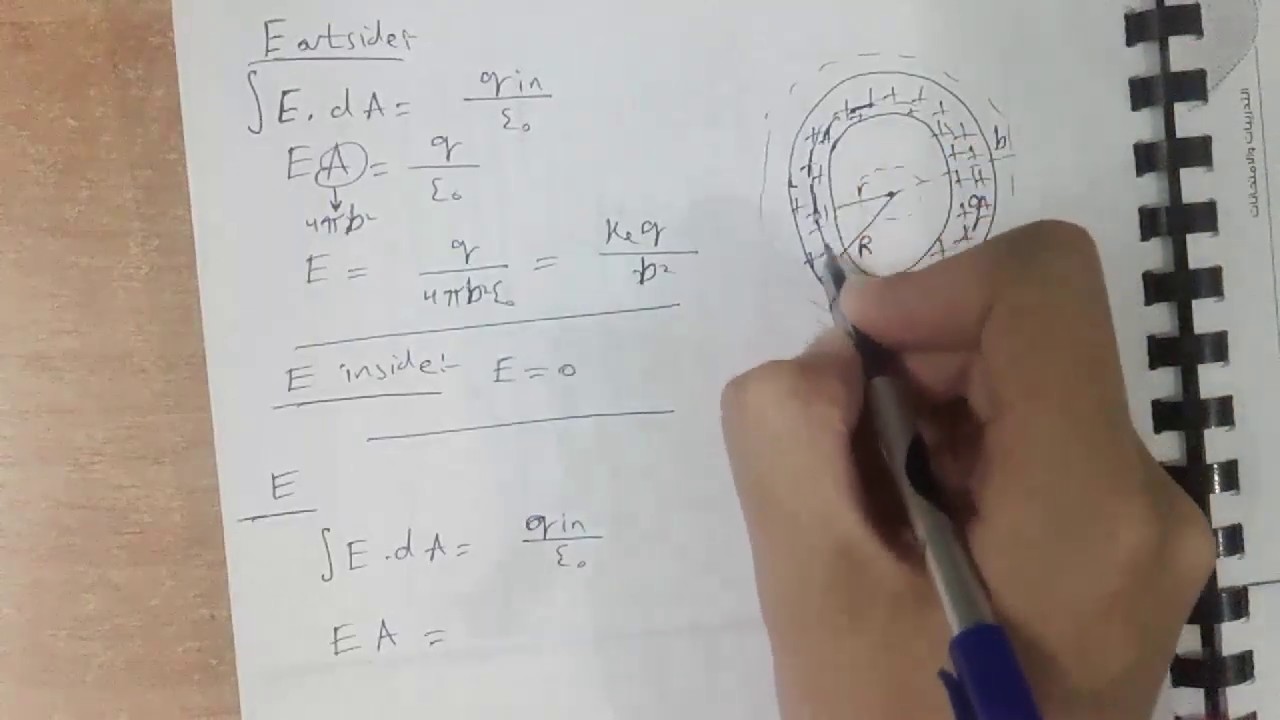 E outside:
∫E. dA = qin/ε₀
EA = q/ε₀
4πb²
E = q/4πb²ε₀ = Keq/b²
E inside:- E = 0
E
∫E.dA = qin/ε₀
EA =
b
r
q
R
التدريبات والامتحانات